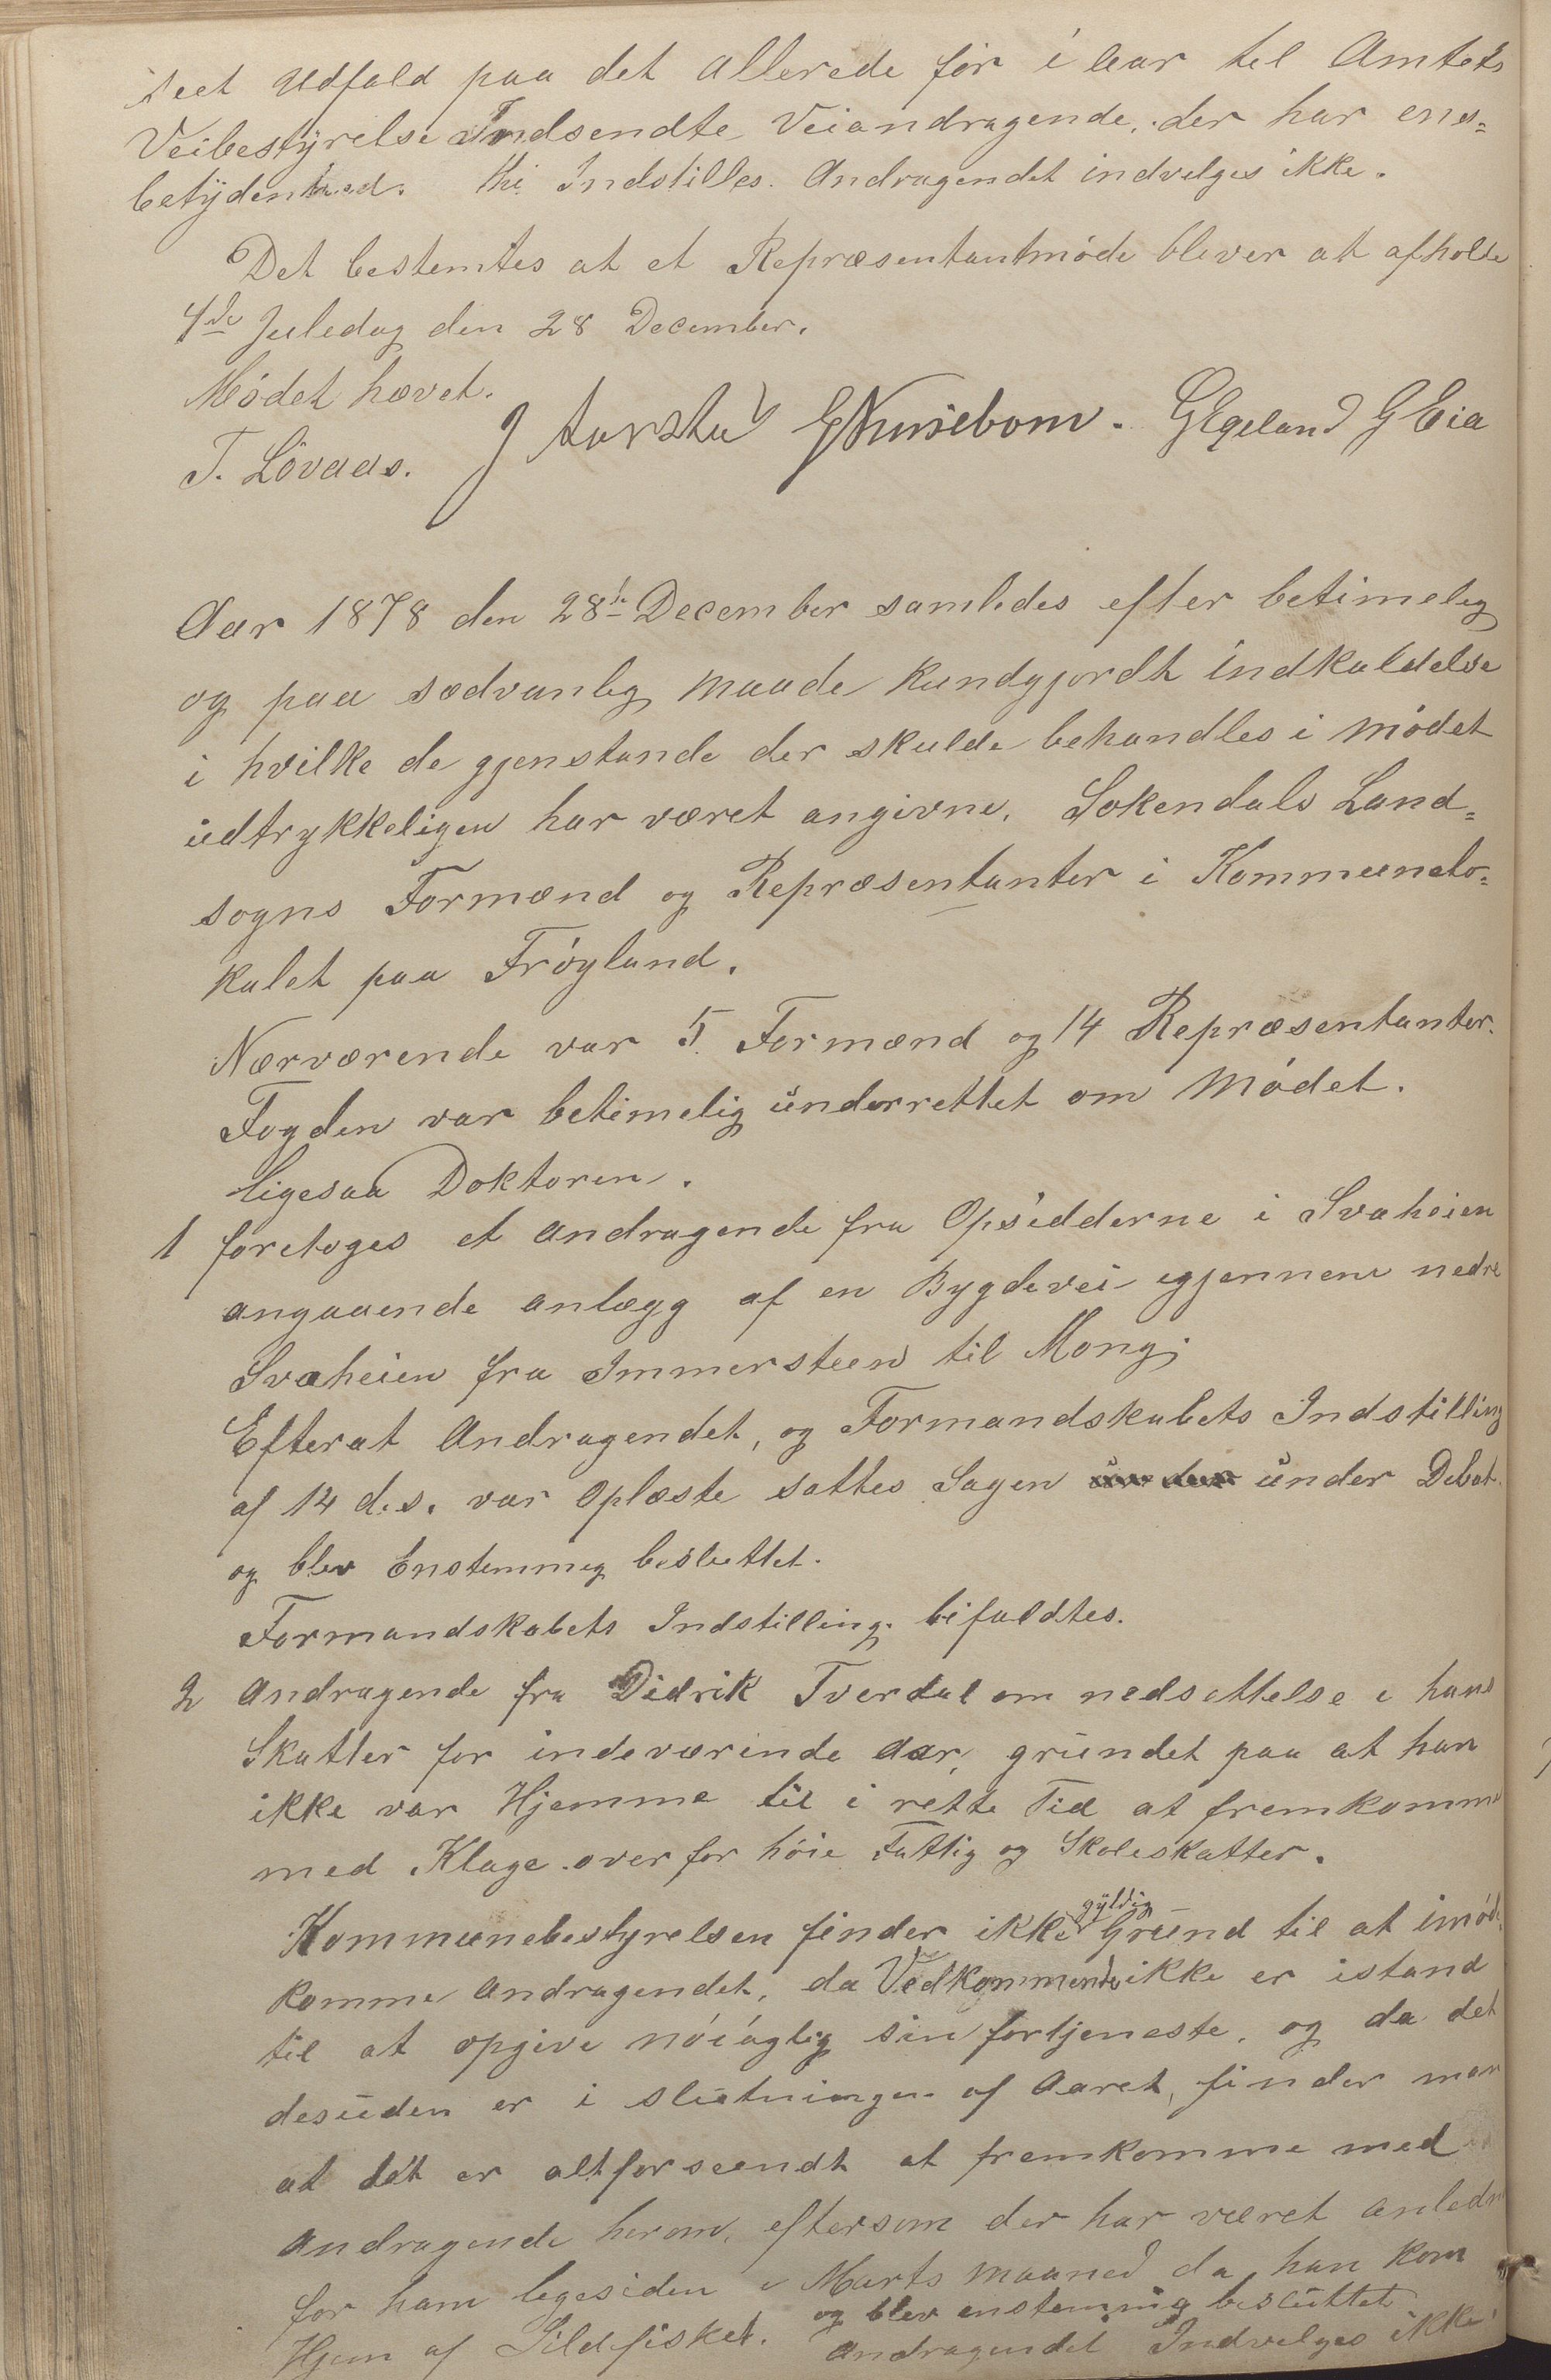 seet Udfald paa det allerede før i Aar til Amtets
Veibestyrelse Indsendte Veiandragende, der har ens=
betydenhed. thi Indstilles. Andragendet indvelges ikke.
Det bestemtes at et Repræsentantmøde bliver at afholde
4de Juledag den 28 December.
Mødet hævet.
T. Løvaas. G Egeland G Eia
Aar 1878 den 28de December samledes efter betimelig
og paa sædvanlig maade kundgjordt indkaldelse
i hvilke de gjenstande der skulde behandles i mødet
udtrykkeligen har været angivne. Sokendals Land=
sogns Formænd og Repræsentanter i Kommunelo=
kalet paa Frøyland.
Nærværende var 5 Formænd og 14 Repræsentanter.
Fogden var betimelig underrettet om Mødet.
ligesaa Doktoren.
1 foretoges et andragende fra Opsidderne i Svaheien
angaaende anlægg af en Bygdevei igjennem nedre
Svaheien fra Immersteen til Mong.
Efterat Andragendet, og Formandskabets Indstilling
af 14 d.s. var Oplæste sattes Sagen under Debat
og blev Enstemmig besluttet.
Formandskabets Indstilling bifaldtes.
2 Andragende fra Didrik Tverdal om nedsættelse i hans
Skatter for indeværende Aar, grundet paa at han
ikke var Hjemme til i rette Tid at fremkomme
med Klage over for høie Fattig og Skoleskatter.
Kommunebestyrelsen finder ikke gyldig Grund til at imøde
komme Andragendet, da Vedkommende ikke er istand
til at opgive nøiagtig sin fortjeneste, og da det
desuden er i slutningen af Aaret, finder man
at det er altforseendt at fremkomme med
Andragende herom, eftersom der har været anledn
for ham legesiden i Marts maaned da han kom
Hjem af Sildfisket. og blev enstemmig besluttet
Andragendet Indvelges ikke